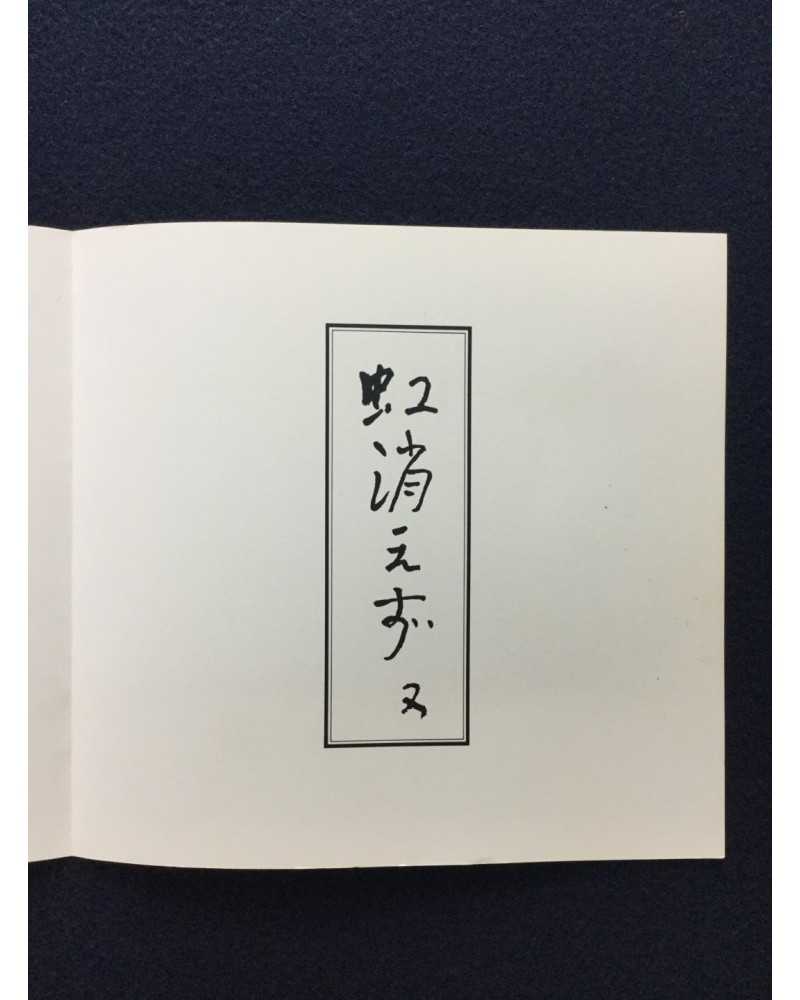 虹消えず 又